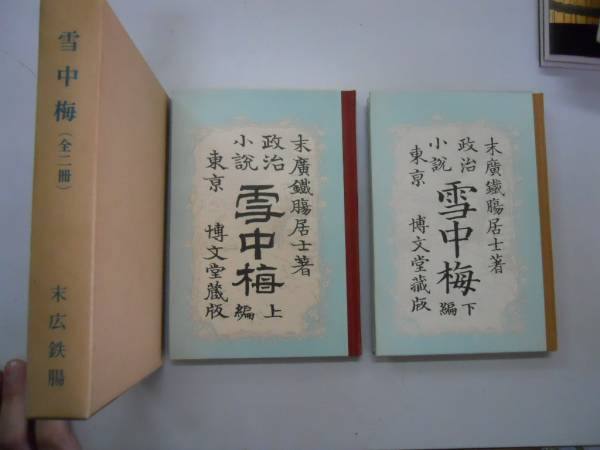 雪中梅(全二冊)
末広鉄腸
末廣鐵腸居士著
政治
小説
雪中梅
上編
東京 博文堂蔵版
末廣鐵腸居士著
政治
小説
雪中梅
下編
東京 博文堂藏版